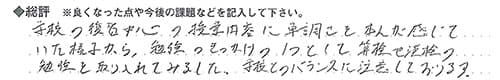 ◆総評 ※良くなった点や今後の課題などを記入して下さい。
学校の復習中心の授業内容に単調さを本人が感じて
いた様子から、勉強のきっかけの1つとして算検や漢検の
勉強を取り入れてみました。学校とのバランスに注意しております。